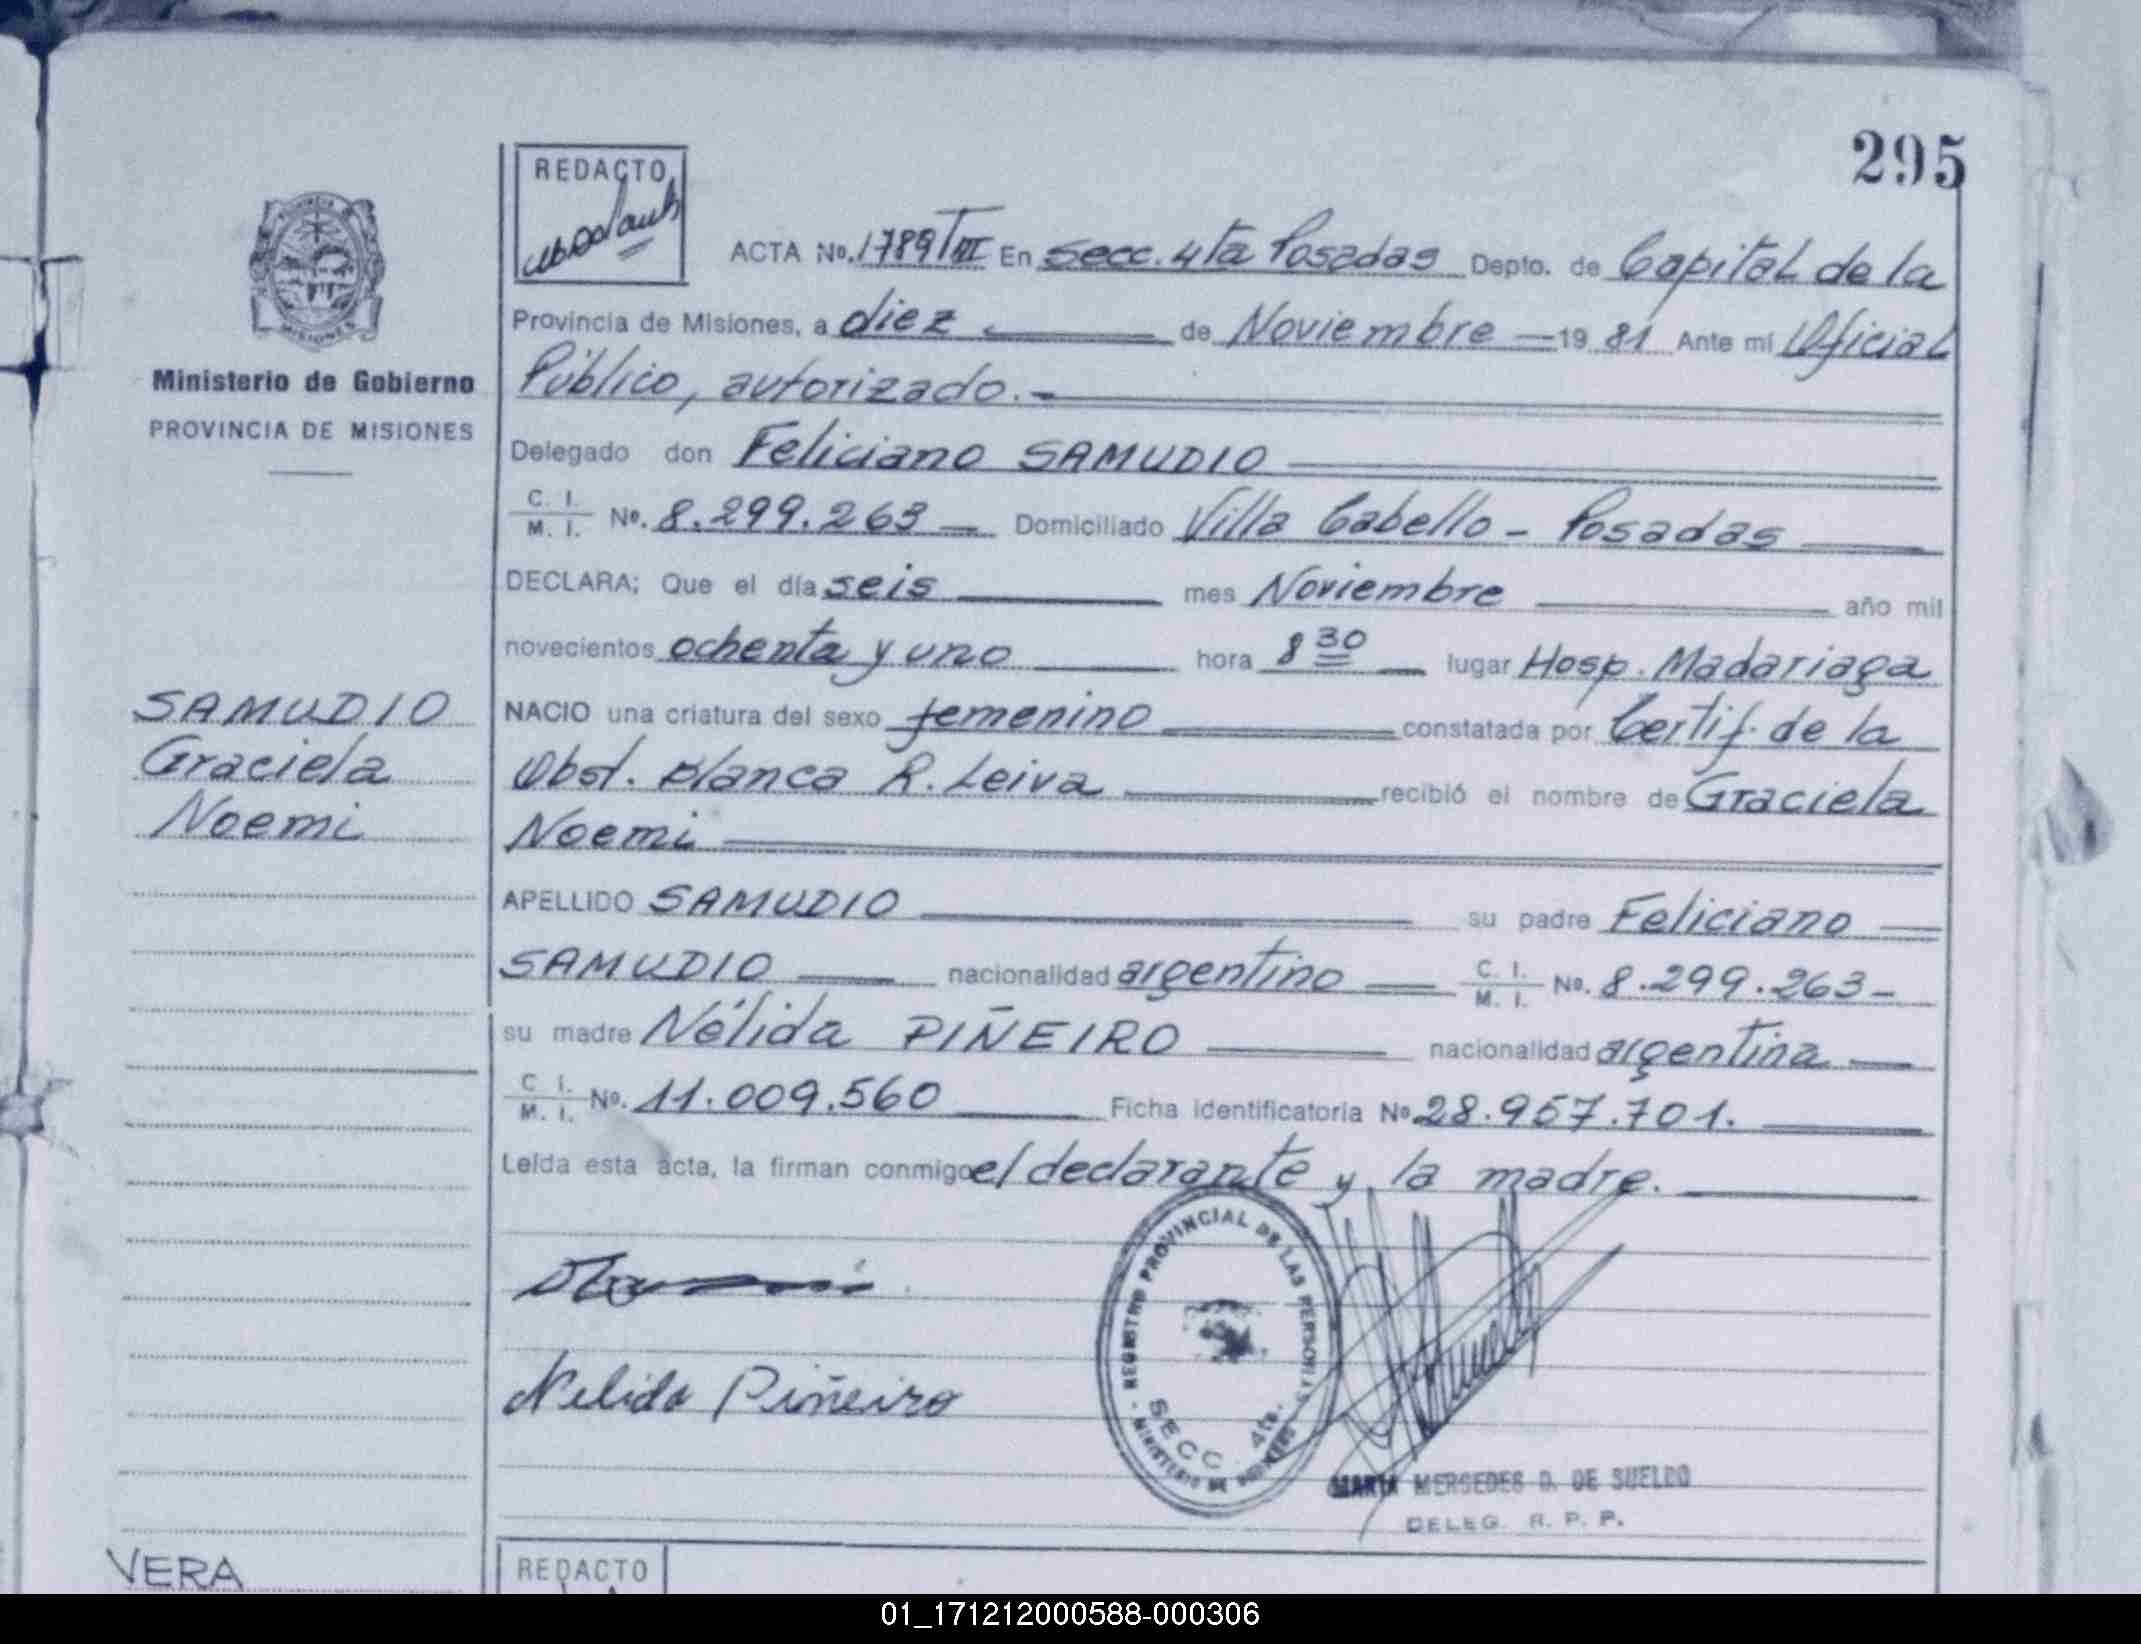 295
REDACTO
ACTA No. 1789 T III En Secc. 4ta Posadas Depto. de Capital de la
Provincia de Misiones, a diez de Noviembre 19 81 Ante mi Oficial
Público, autorizado.-
Delegado don Feliciano SAMUDIO
C. I.
M. I. No. 8.299.263 Domiciliado Villa Cabello - Posadas
DECLARA; Que el día seis mes Noviembre año mil
novecientos ochenta y uno hora 8 30 lugar Hosp. Madariaga
NACIO una criatura del sexo femenino constatada por Certif. de la
Obst. Blanca R. Leiva recibió el nombre de Graciela
Noemi
APELLIDO SAMUDIO su padre Feliciano
SAMUDIO nacionalidad argentino C. I.
M. I. No. 8.299.263-
su madre Nélida PIÑEIRO nacionalidad argentina
C. I.
M. I. No. 11.009.560 Ficha identificatoria No 28.957.701.
Leída esta acta, la firman conmigo el declarante y la madre.
Nelida Piñeiro
REGISTRO PROVINCIAL DE LAS PERSONAS
SECC. 4ta.
MINISTERIO DE
MARIA MERSEDES D. DE SUELDO
DELEG. R. P. P.
REDACTO
PROVINCIA DE
MISIONES
Ministerio de Gobierno
PROVINCIA DE MISIONES
SAMUDIO
Graciela
Noemi
VERA
01_171212000588-000306